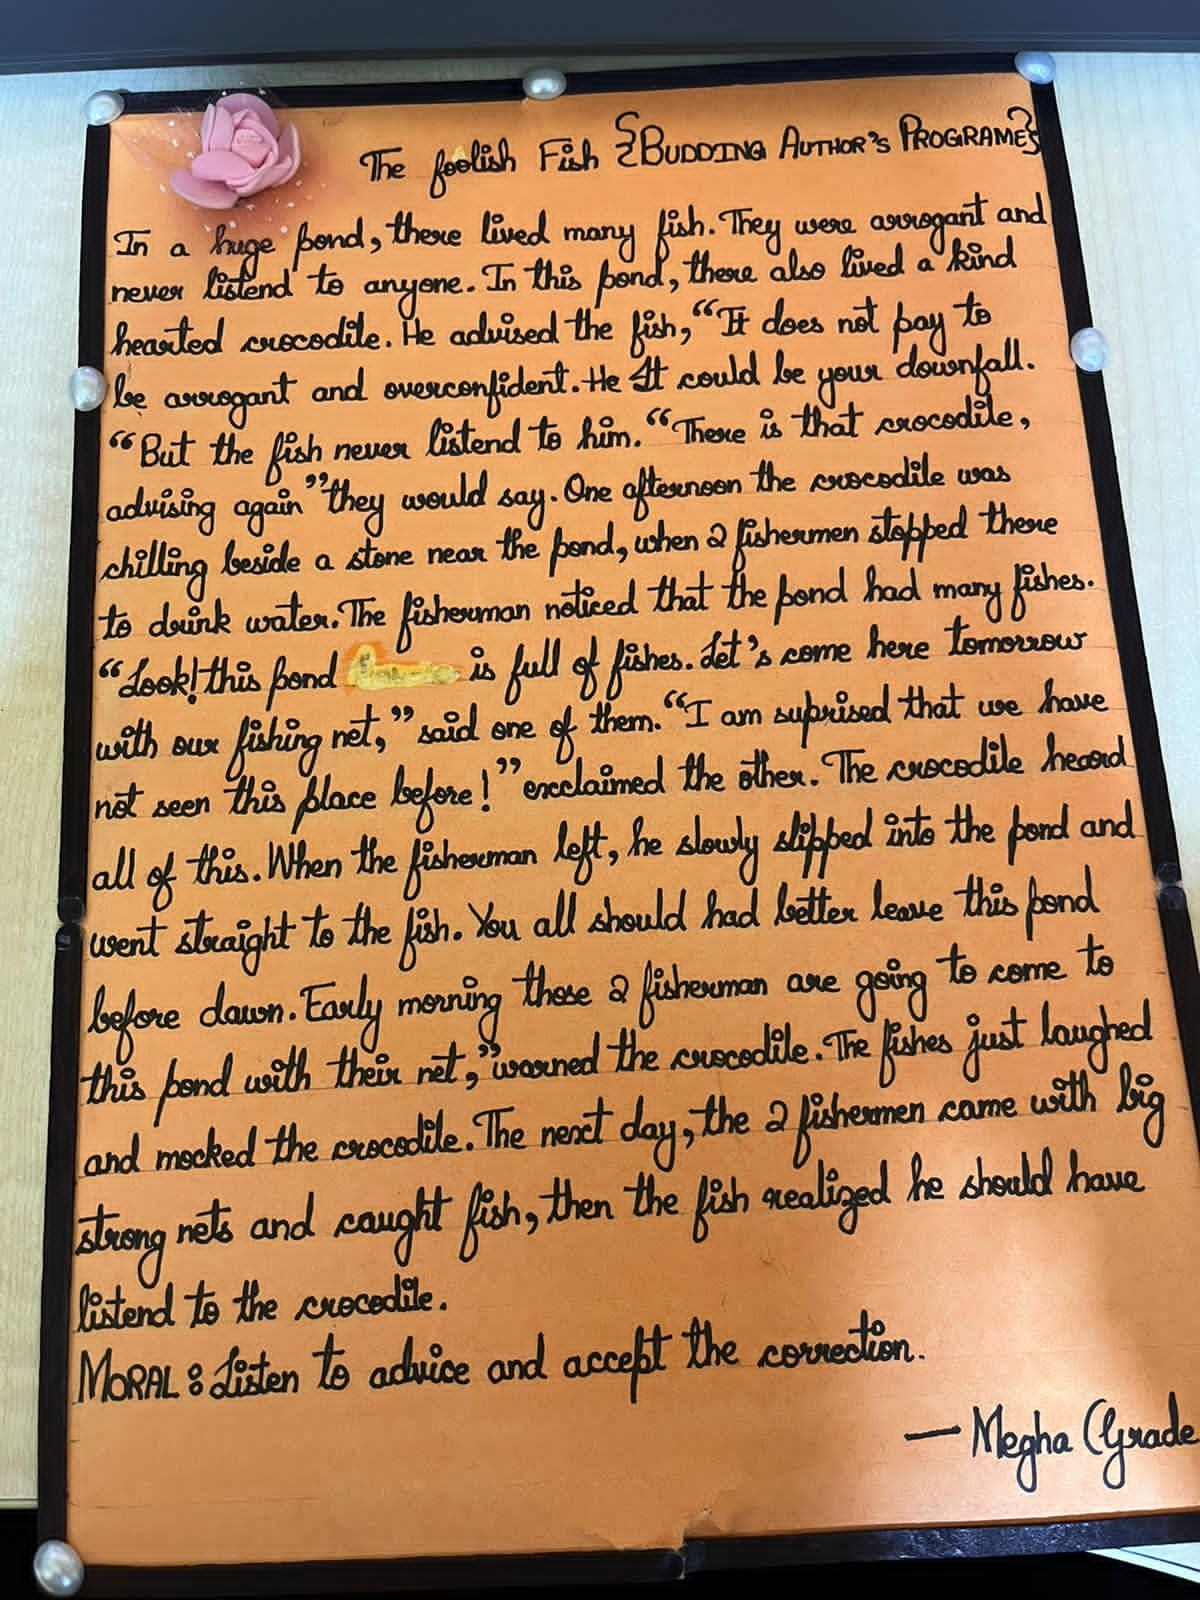 The foolish Fish {BUDDING AUTHOR'S PROGRAME}
In a huge pond, there lived many fish. They were arrogant and
never listend to anyone. In this pond, there also lived a kind
hearted crocodile. He advised the fish, "It does not pay to
be arrogant and overconfident. He It could be your downfall.
"But the fish never listend to him. "There is that crocodile,
advising again" they would say. One afternoon the crocodile was
chilling beside a stone near the pond, when 2 fishermen stopped there
to drink water. The fisherman noticed that the pond had many fishes.
"Look! this pond is full of fishes. Let's come here tomorrow
with our fishing net," said one of them. "I am suprised that we have
not seen this place before!" exclaimed the other. The crocodile heard
all of this. When the fisherman left, he slowly slipped into the pond and
went straight to the fish. You all should had better leave this pond
before dawn. Early morning those 2 fisherman are going to come to
this pond with their net," warned the crocodile. The fishes just laughed
and mocked the crocodile. The next day, the 2 fishermen came with big
strong nets and caught fish, then the fish realized he should have
listend to the crocodile.
MORAL : Listen to advice and accept the correction.
— Megha (Grade